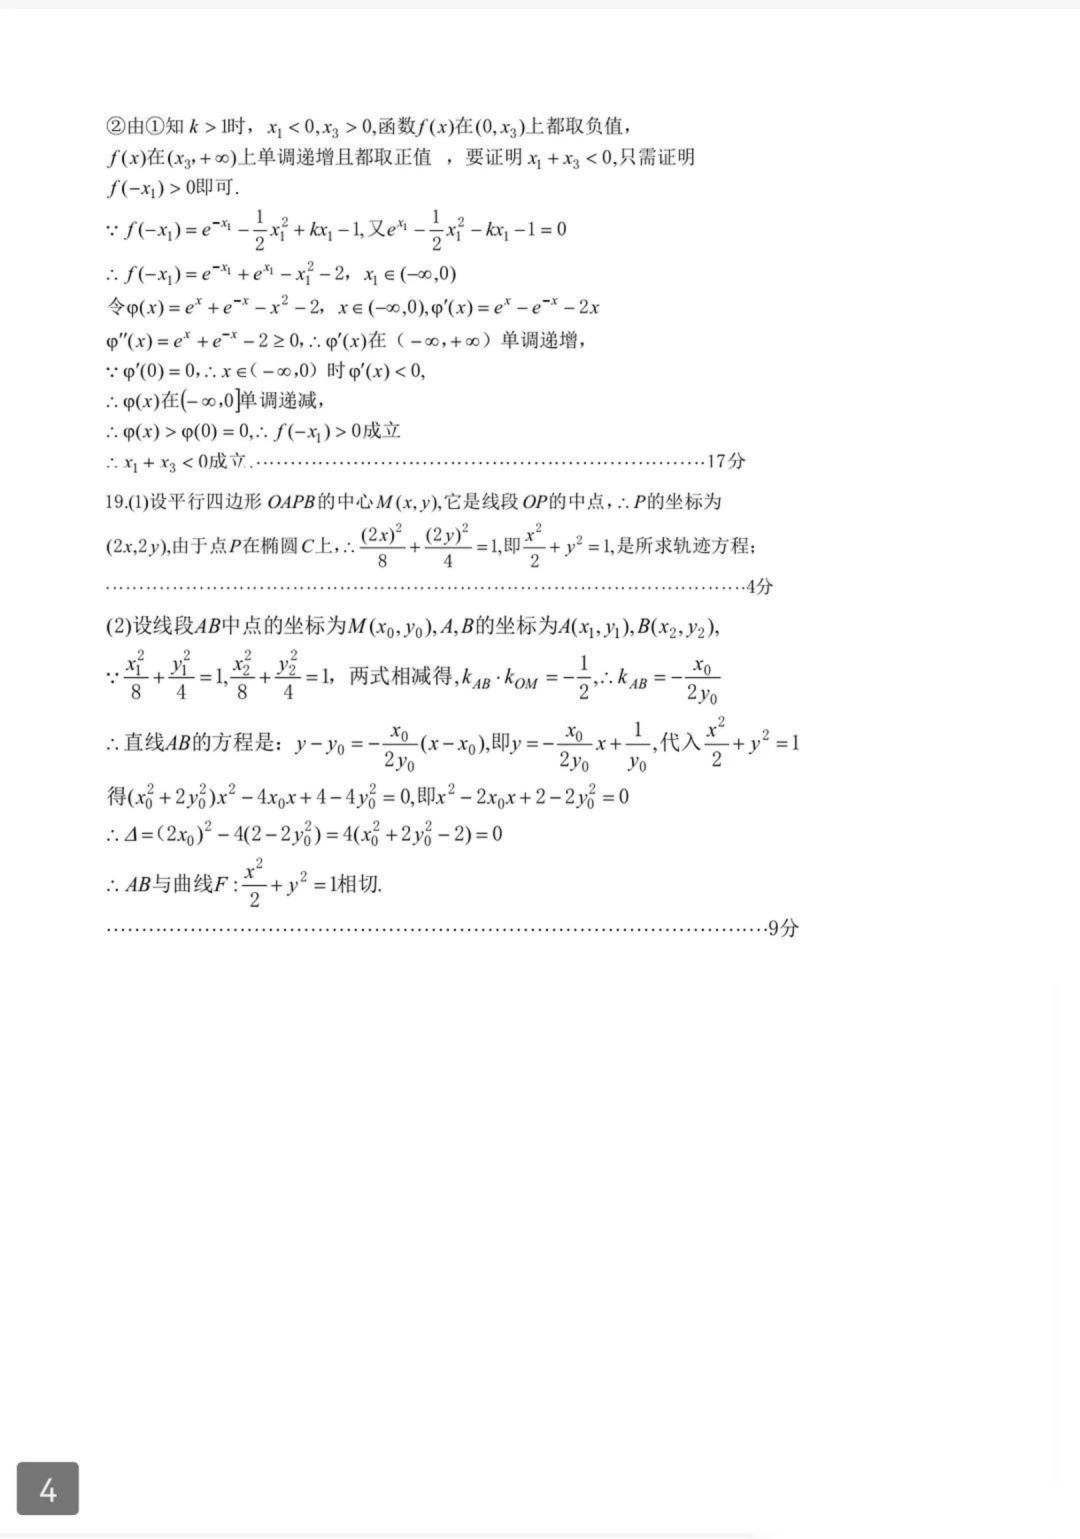 ②由①知 k > 1时，x₁ < 0, x₃ > 0,函数f(x)在(0, x₃)上都取负值，
f(x)在(x₃, + ∞)上单调递增且都取正值 ，要证明 x₁ + x₃ < 0,只需证明
f(−x₁) > 0即可.
∵ f(−x₁) = e^{−x₁} − \frac{1}{2}x₁² + kx₁ − 1, 又e^{x₁} − \frac{1}{2}x₁² − kx₁ − 1 = 0
∴ f(−x₁) = e^{−x₁} + e^{x₁} − x₁² − 2，x₁ ∈ (−∞,0)
令φ(x) = e^x + e^{−x} − x² − 2，x ∈ (−∞,0), φ′(x) = e^x − e^{−x} − 2x
φ″(x) = e^x + e^{−x} − 2 ≥ 0, ∴ φ′(x)在（ − ∞,+ ∞）单调递增，
∵ φ′(0) = 0, ∴ x ∈（ − ∞,0）时 φ′(x) < 0,
∴ φ(x)在(− ∞,0]单调递减，
∴ φ(x) > φ(0) = 0, ∴ f(−x₁) > 0成立
∴ x₁ + x₃ < 0成立.…………………………………………………………17分
19.(1)设平行四边形 OAPB的中心M(x, y),它是线段OP的中点，∴ P的坐标为
(2x,2y),由于点P在椭圆C上，∴ \frac{(2x)²}{8} + \frac{(2y)²}{4} = 1,即\frac{x²}{2} + y² = 1,是所求轨迹方程；
……………………………………………………………………………………4分
(2)设线段AB中点的坐标为M(x₀, y₀), A, B的坐标为A(x₁, y₁), B(x₂, y₂),
∵ \frac{x₁²}{8} + \frac{y₁²}{4} = 1, \frac{x₂²}{8} + \frac{y₂²}{4} = 1，两式相减得, k_{AB} · k_{OM} = −\frac{1}{2}, ∴ k_{AB} = −\frac{x₀}{2y₀}
∴ 直线AB的方程是：y − y₀ = −\frac{x₀}{2y₀}(x − x₀),即y = −\frac{x₀}{2y₀}x + \frac{1}{y₀},代入\frac{x²}{2} + y² = 1
得(x₀² + 2y₀²)x² − 4x₀x + 4 − 4y₀² = 0,即x² − 2x₀x + 2 − 2y₀² = 0
∴ Δ =（2x₀)² − 4(2 − 2y₀²) = 4(x₀² + 2y₀² − 2) = 0
∴ AB与曲线F : \frac{x²}{2} + y² = 1相切.
………………………………………………………………………………………9分
4